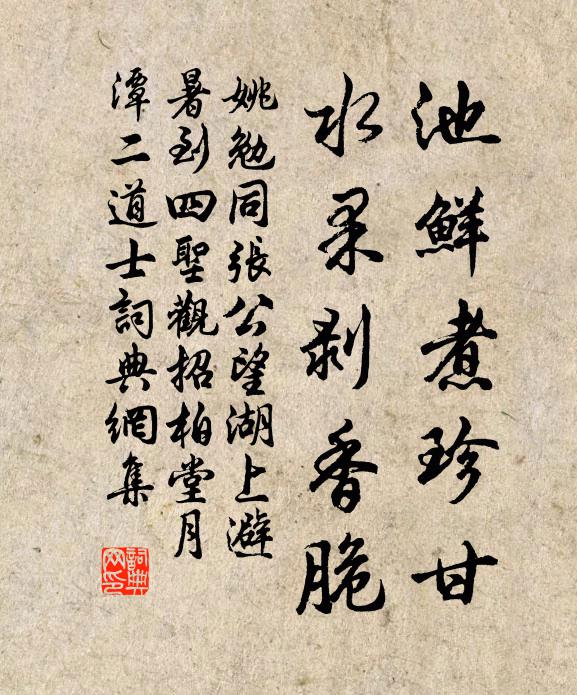 池鮮煮珍甘
水果剥香脆
姚勉同張公望湖上避
暑到四聖觀招柏堂月
潭二道士詞典網集
詞典网印